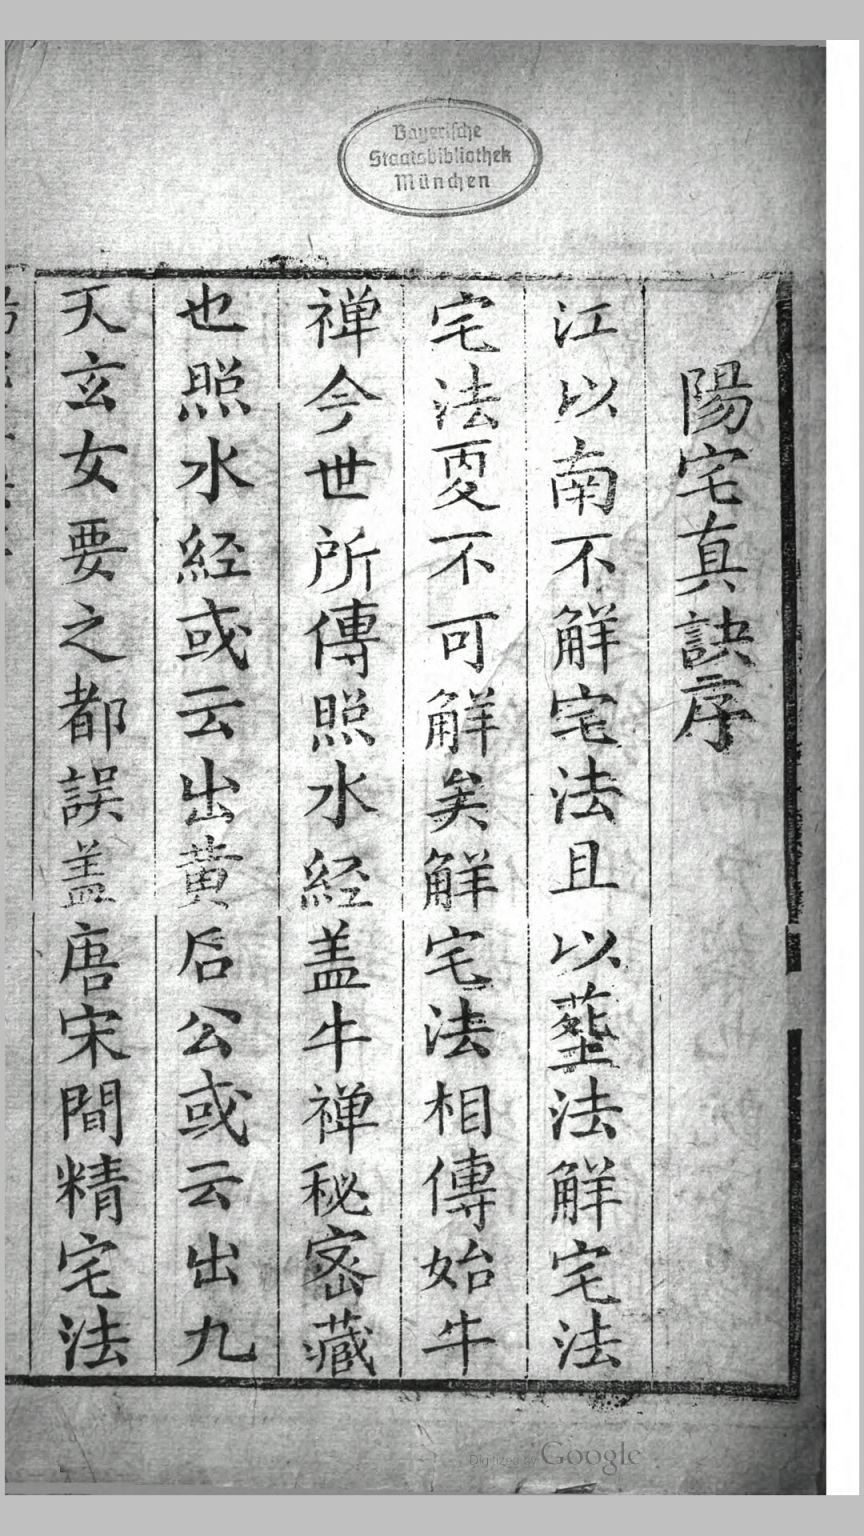 陽宅真訣序
江以南不觧宅法且以塟法觧宅法
宅法㪅不可觧矣觧宅法相傳始牛
禅今世所傳照水経盖牛禅秘宻藏
也照水経或云出黄后公或云出九
天玄女要之都誤盖唐宋間精宅法
Bayerische
Staatsbibliothek
München
Digitized by Google